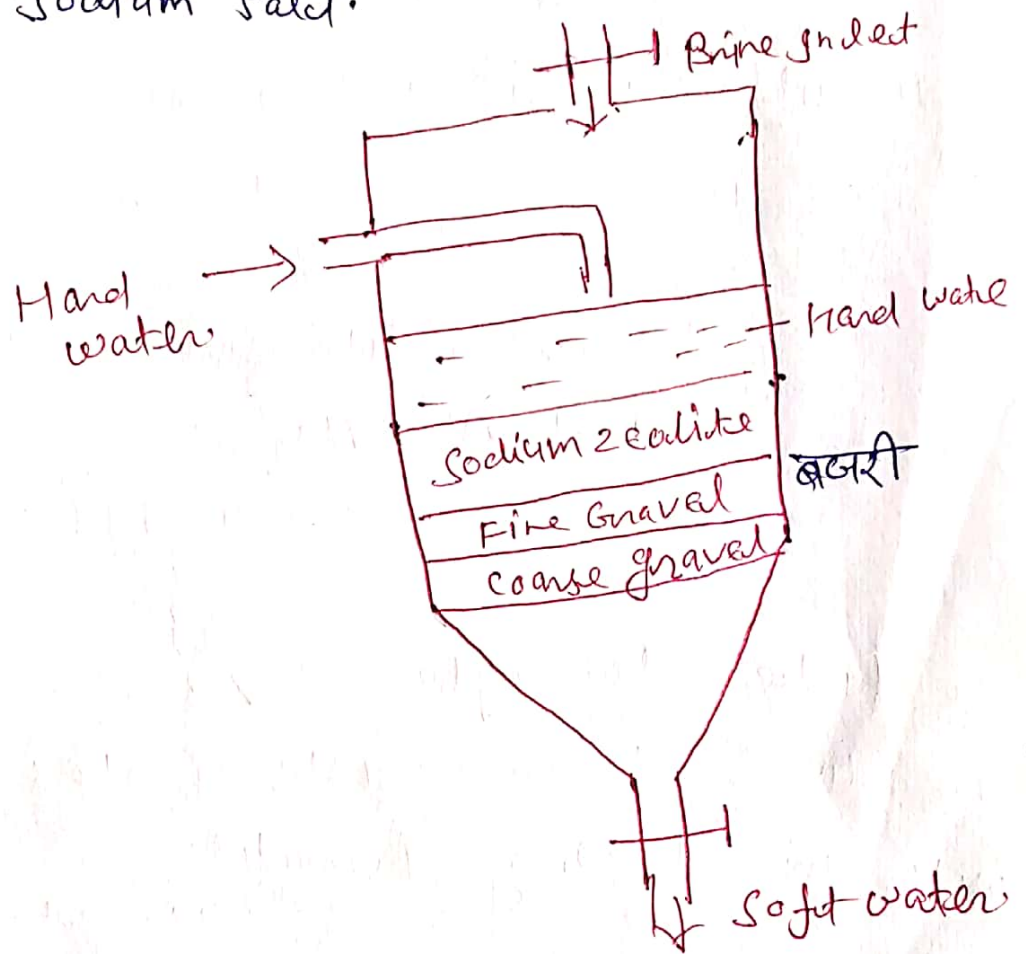 Sodium Salt.
Brine Inleet
Hard
water
Hard wate
Sodium Zeolite
बजरी
Fine Graval
Coarse graval
Soft water